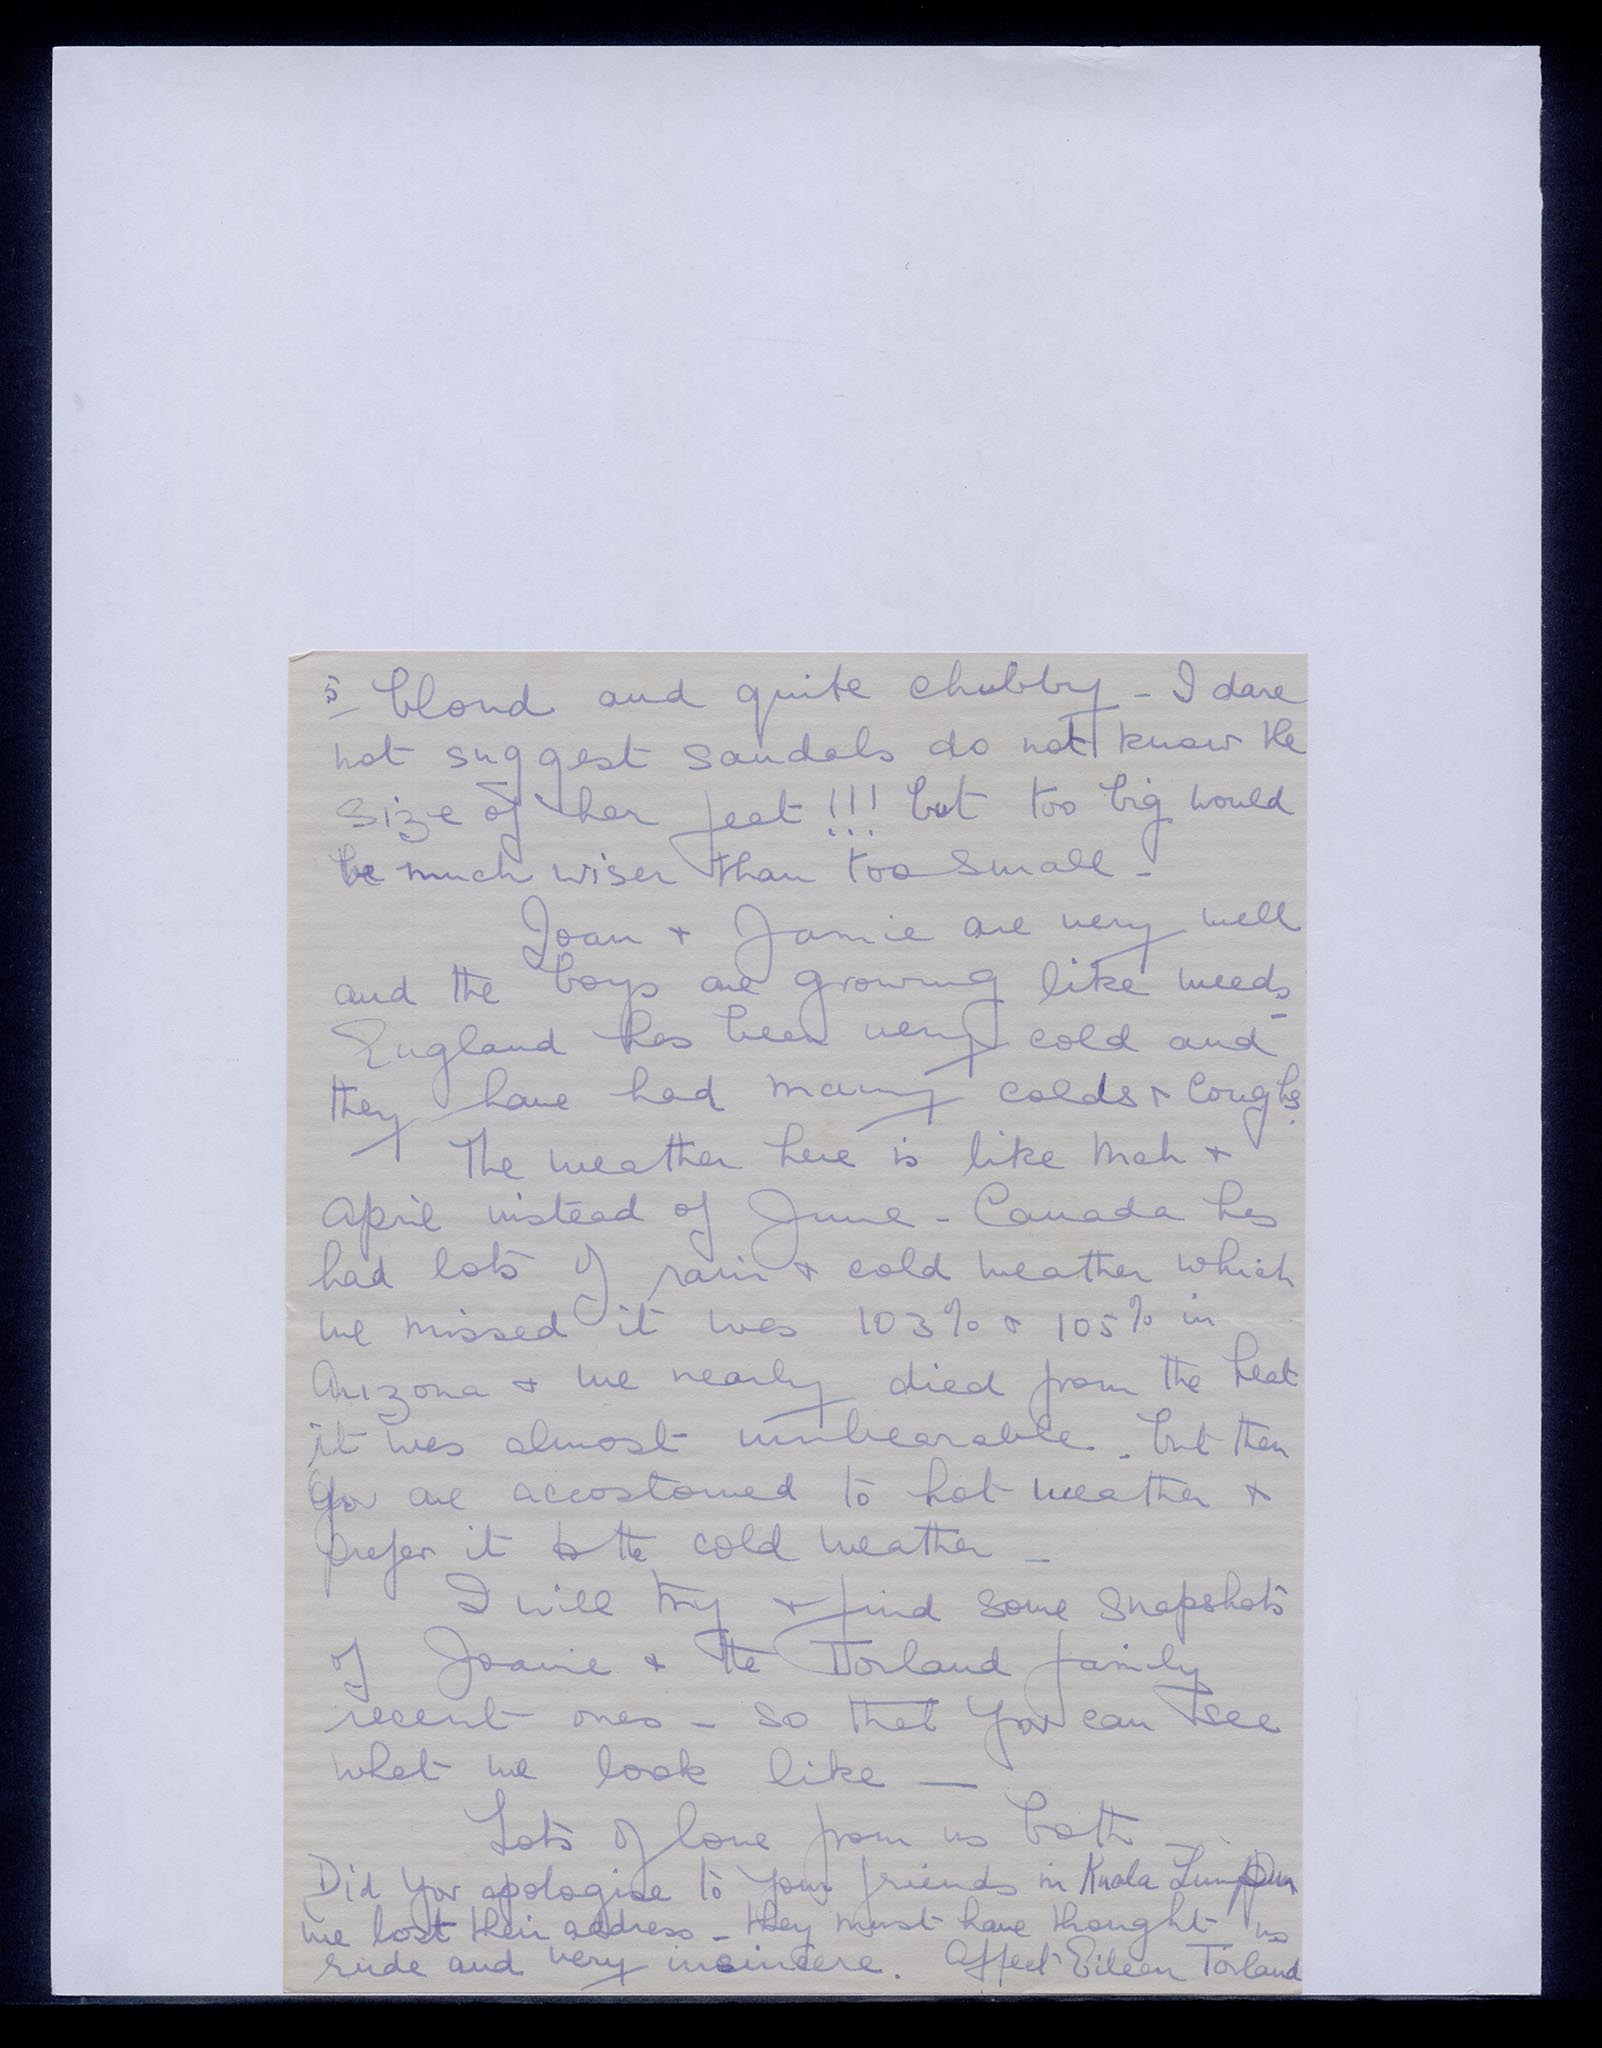 5 blond and quite chubby - I dare
not suggest sandals do not know the
size of her feet !!! but too big would
be much wiser than too small -
Joan + Jamie are very well
and the boys are growing like weeds -
England has been very cold and
they have had many colds + coughs.
The weather here is like Mch +
April instead of June - Canada has
had lots of rain + cold weather which
we missed it was 103% + 105% in
Arizona + we nearly died from the heat
it was almost unbearable - but then
you are accostomed to hot weather +
prefer it to the cold weather -
I will try + find some snapshots
of Joanie + the Torland family
recent ones - so that you can see
what we look like -
Lots of love from us both -
Did you apologise to your friends in Kuala Lumpur
we lost their address - they must have thought us
rude and very insincere. Affect Eileen Torland